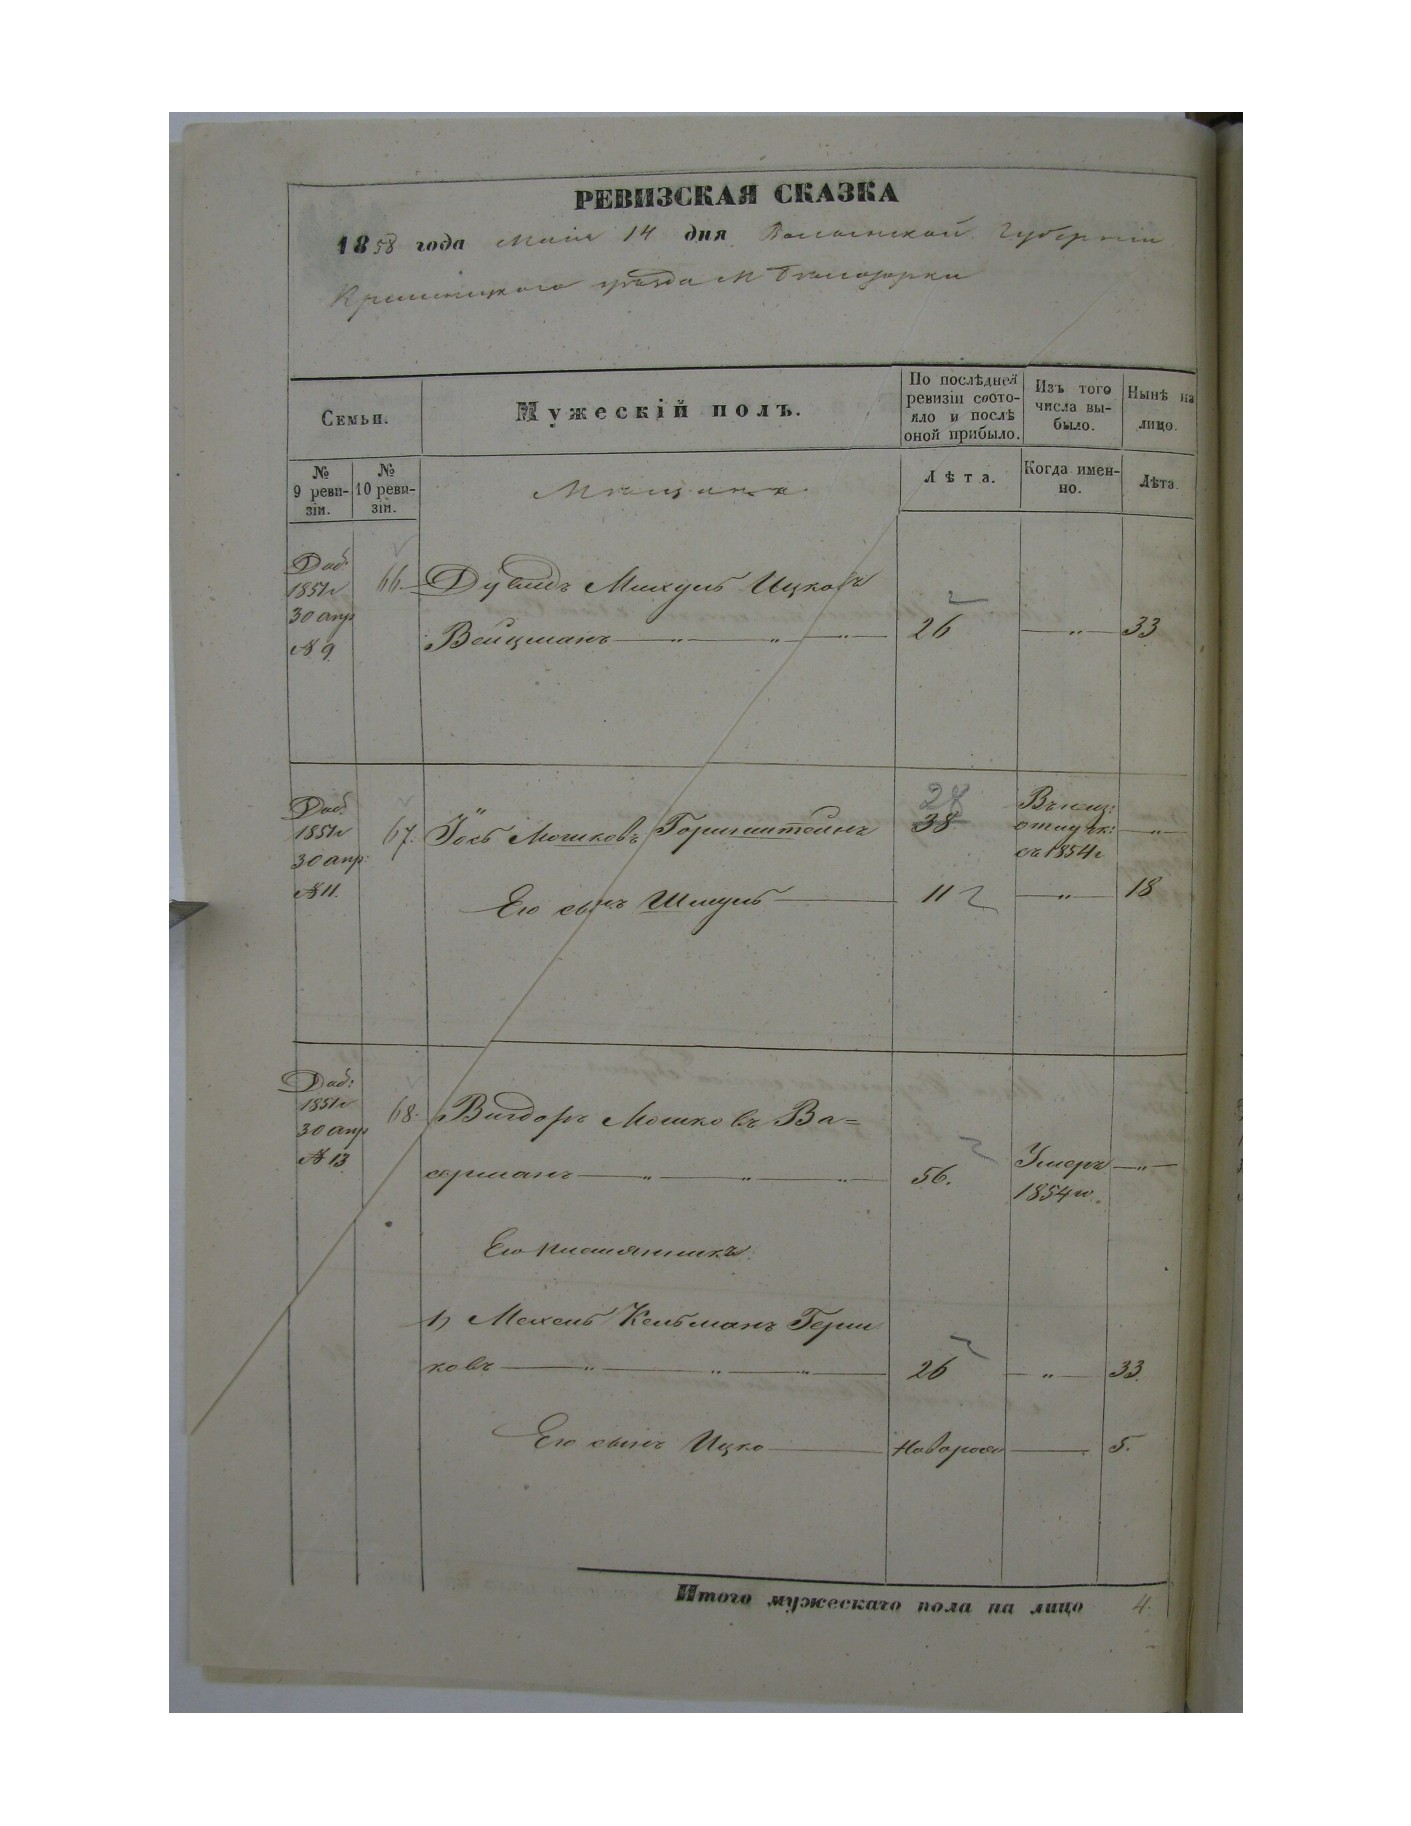 РЕВИЗСКАЯ СКАЗКА
1858 года Маія 14 дня Волынской Губерніи
Кременецкого уѣзда М Бѣлозорки
Семьи.
Мужескій полъ.
По послѣдней ревизіи состояло и послѣ оной прибыло.
Изъ того числа выбыло.
Ныне на лицо.
№ 9 ревизіи.
№ 10 ревизіи.
Мѣщане
Лѣта.
Когда именно.
Лѣта.
Доб:
1851г
30 апр
№ 9
66.
Дувидъ Михуль Ицковъ
Вейцманъ — „ — „ — „ —
26
— „ —
33
Доб:
1851г
30 апр:
№ 11.
67.
Іось Мошковъ Горинштейнъ
28
38
Въ неиз:
отлучк:
съ 1854г
— „ —
Его сынъ Шмуль —
11
— „ —
18
Доб:
1851г
30 апр
№ 13
68.
Вигдоръ Мошковъ Ва=
серманъ — „ — „ — „ —
56.
Умеръ
1854го.
— „ —
Его племянникъ
1) Мехель Кельманъ Герш
ковъ — „ — „ — „ —
26
— „ —
33.
Его сынъ Ицко —
Новорож
—
5.
Итого мужескаго пола на лицо 4.